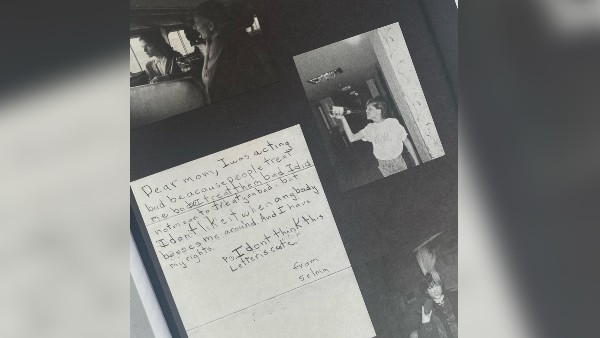 Dear mom, I was acting
bad beacause people treat
me bad. I treat them bad I did
not mean to treat you bad. but
I dont like it when anybody
bosses me around. And I have
my rights.
P.S. I dont think this
Letter is cute
from
Selma